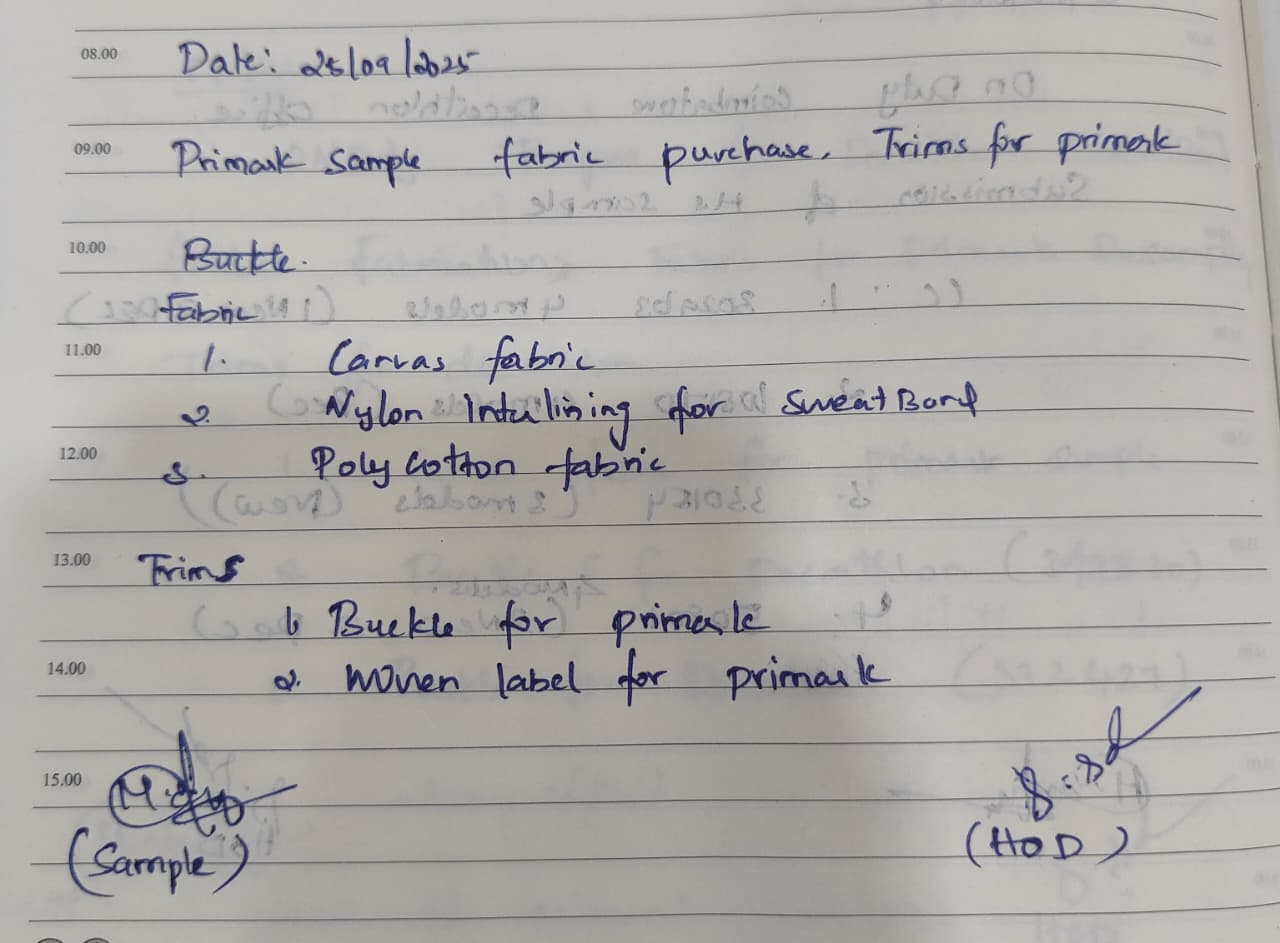 08.00 Date: 25/09/2025
09.00 Primark Sample fabric purchase, Trims for primark
10.00 Buckle.
Fabric
11.00 1. Canvas fabric
2. Nylon interlining for Sweat Band
12.00 3. Poly Cotton fabric
13.00 Trims
1. Buckle for primark
14.00 2. Woven label for primark
15.00
(Sample) (HOD)